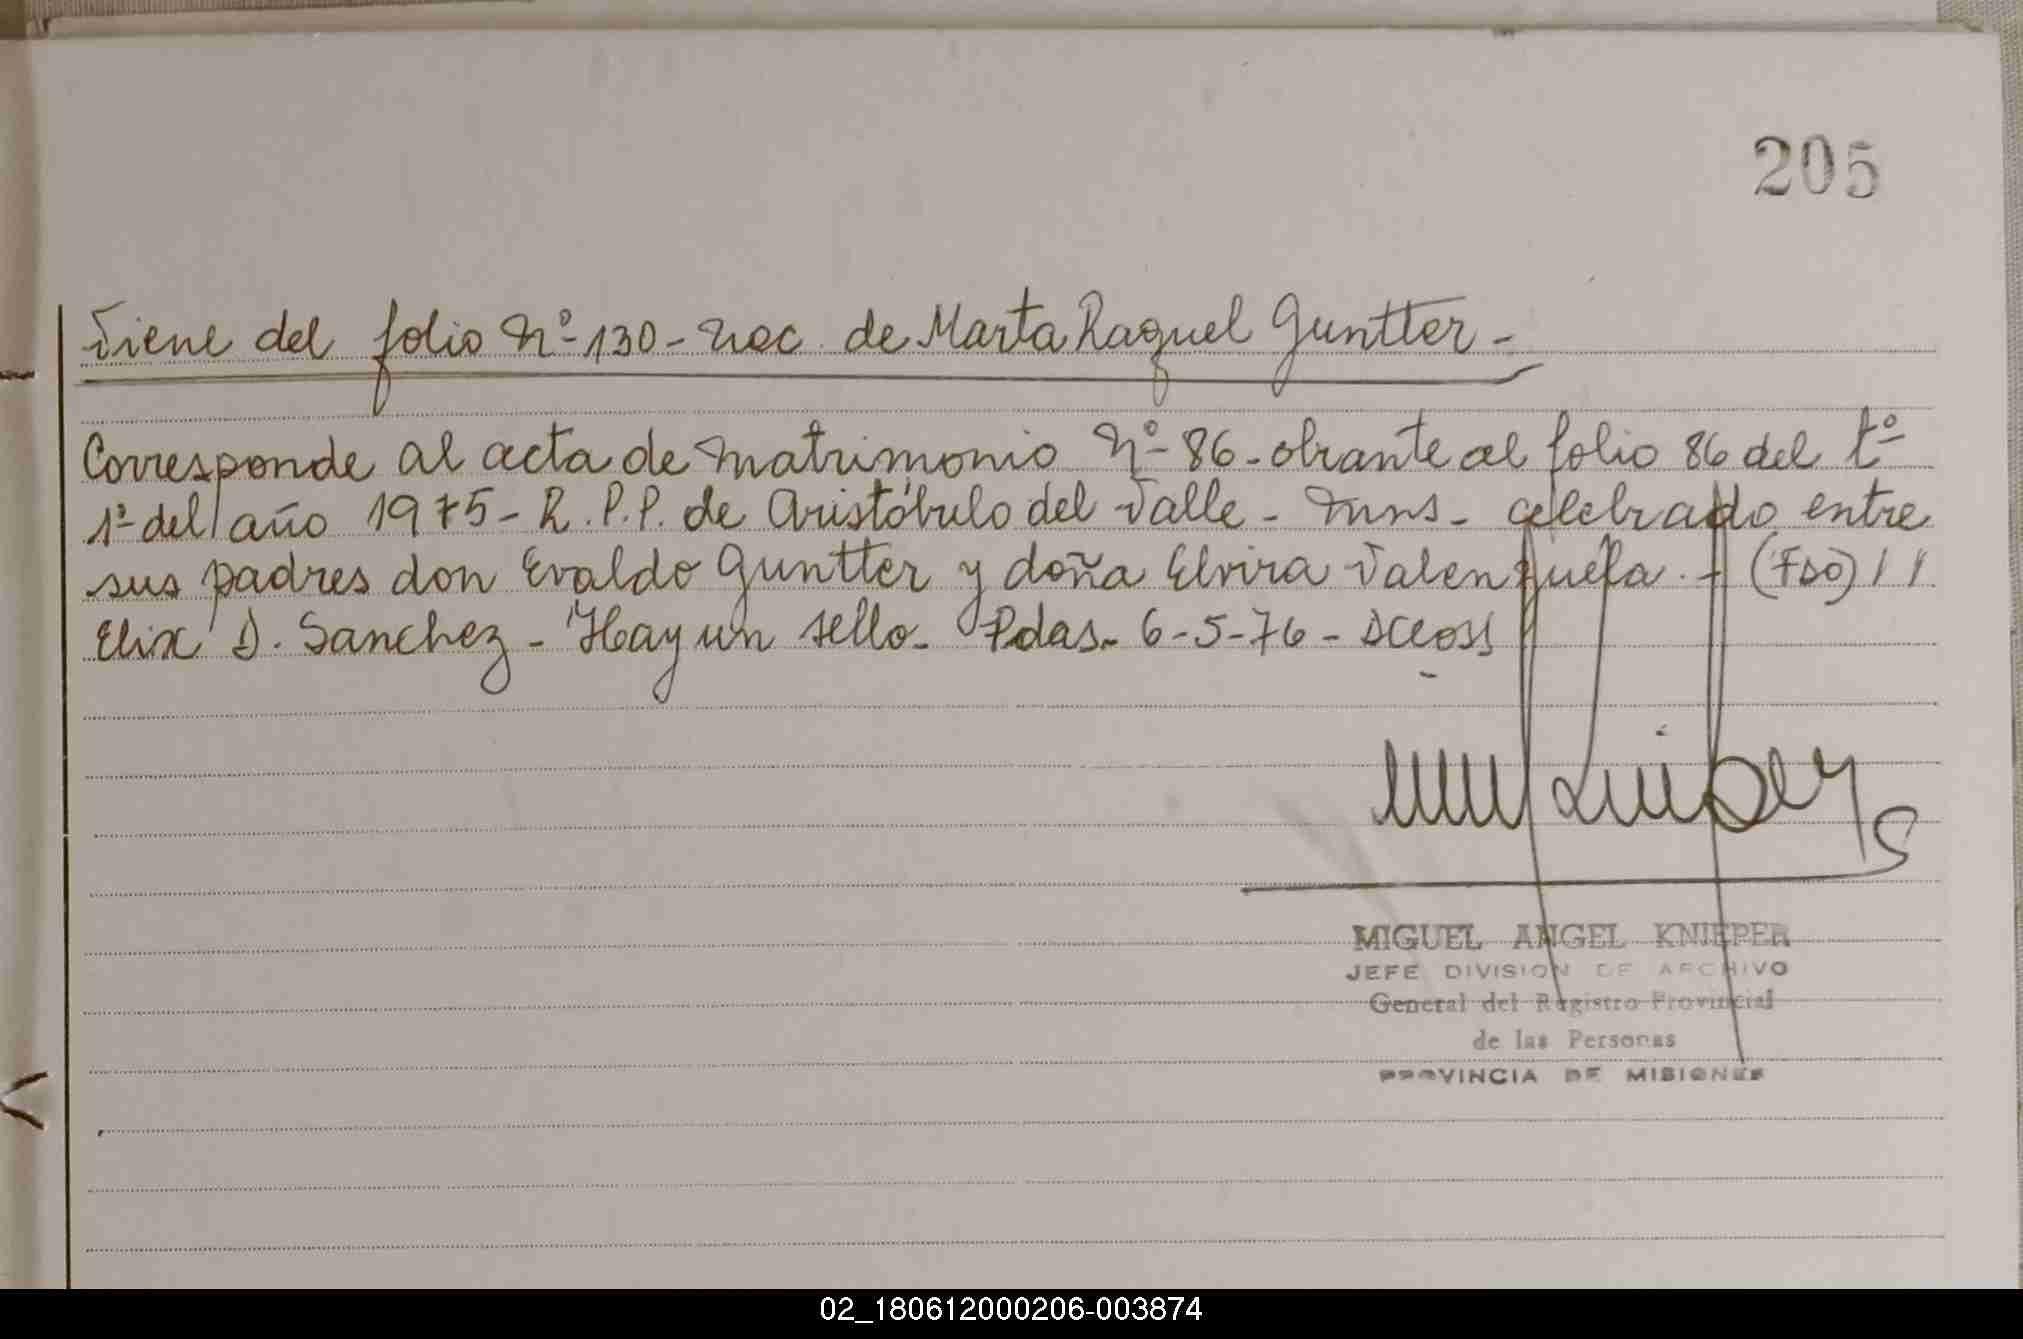 205
Viene del folio Nº 130 - Nac. de Marta Raquel Guntter -
Corresponde al acta de matrimonio Nº 86 - obrante al folio 86 del tº
1º del año 1975 - R.P.P. de Aristóbulo del Valle - Mns - celebrado entre
sus padres don Evaldo Guntter y doña Elvira Valenzuela. - (FDO) //
Elix D. Sanchez - Hay un sello - Pdas - 6-5-76 -
MIGUEL ANGEL KNIEPER
JEFE DIVISION DE ARCHIVO
General del Registro Provincial
de las Personas
PROVINCIA DE MISIONES
02_180612000206-003874